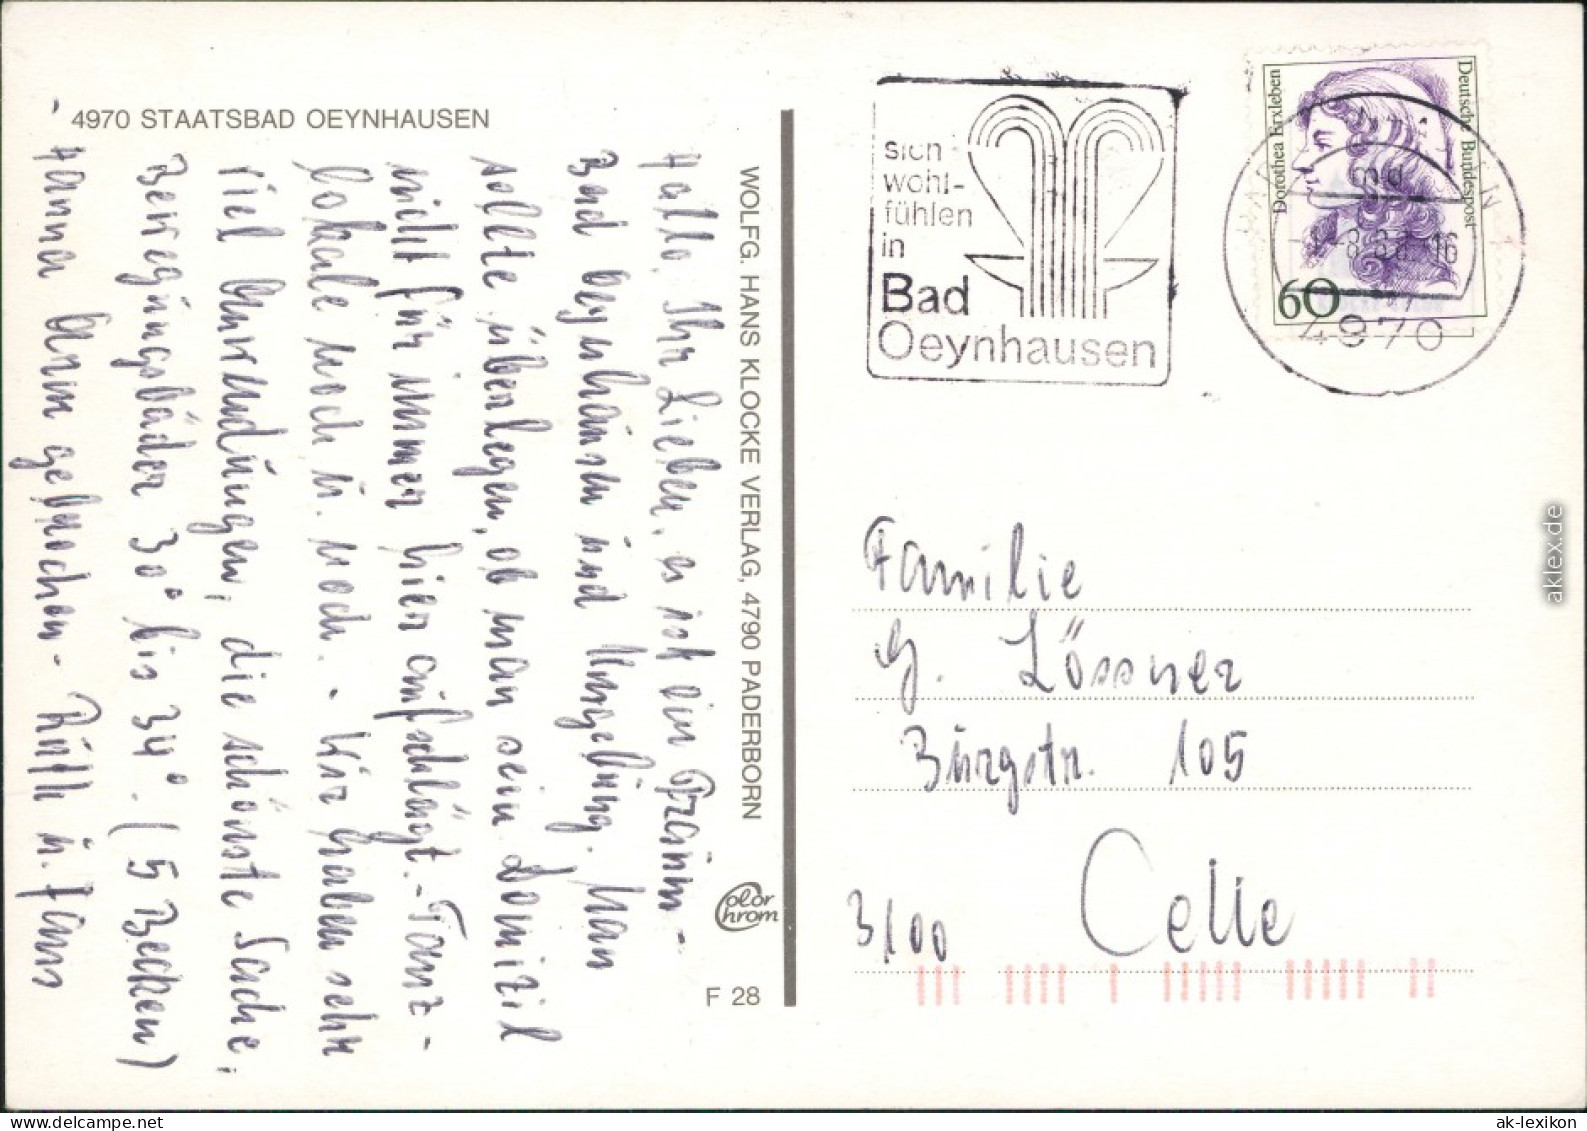 4970 STAATSBAD OEYNHAUSEN
Hallo. Ihr Lieben, es ist ein Träum-
Bad Oeynhausen und Umgebung. Man
sollte überlegen, ob man sein Domizil
nicht für immer hier aufschlägt.- Tanz-
lokale noch u. noch. - Wir haben sehr
viel Anwendungen, die schönste Sache,
Bewegungsbäder 30° bis 34°. (5 Becken)
Hanna Arm gebrochen - Ruth u. Hans
WOLFG. HANS KLOCKE VERLAG, 4790 PADERBORN
Color
Chrom
F 28
sich
wohl-
fühlen
in
Bad
Oeynhausen
Dorothea Erxleben
Deutsche Bundespost
60
md
4970
Familie
G. Lössner
Burgstr. 105
3100 Celle
aklex.de
ak-lexikon